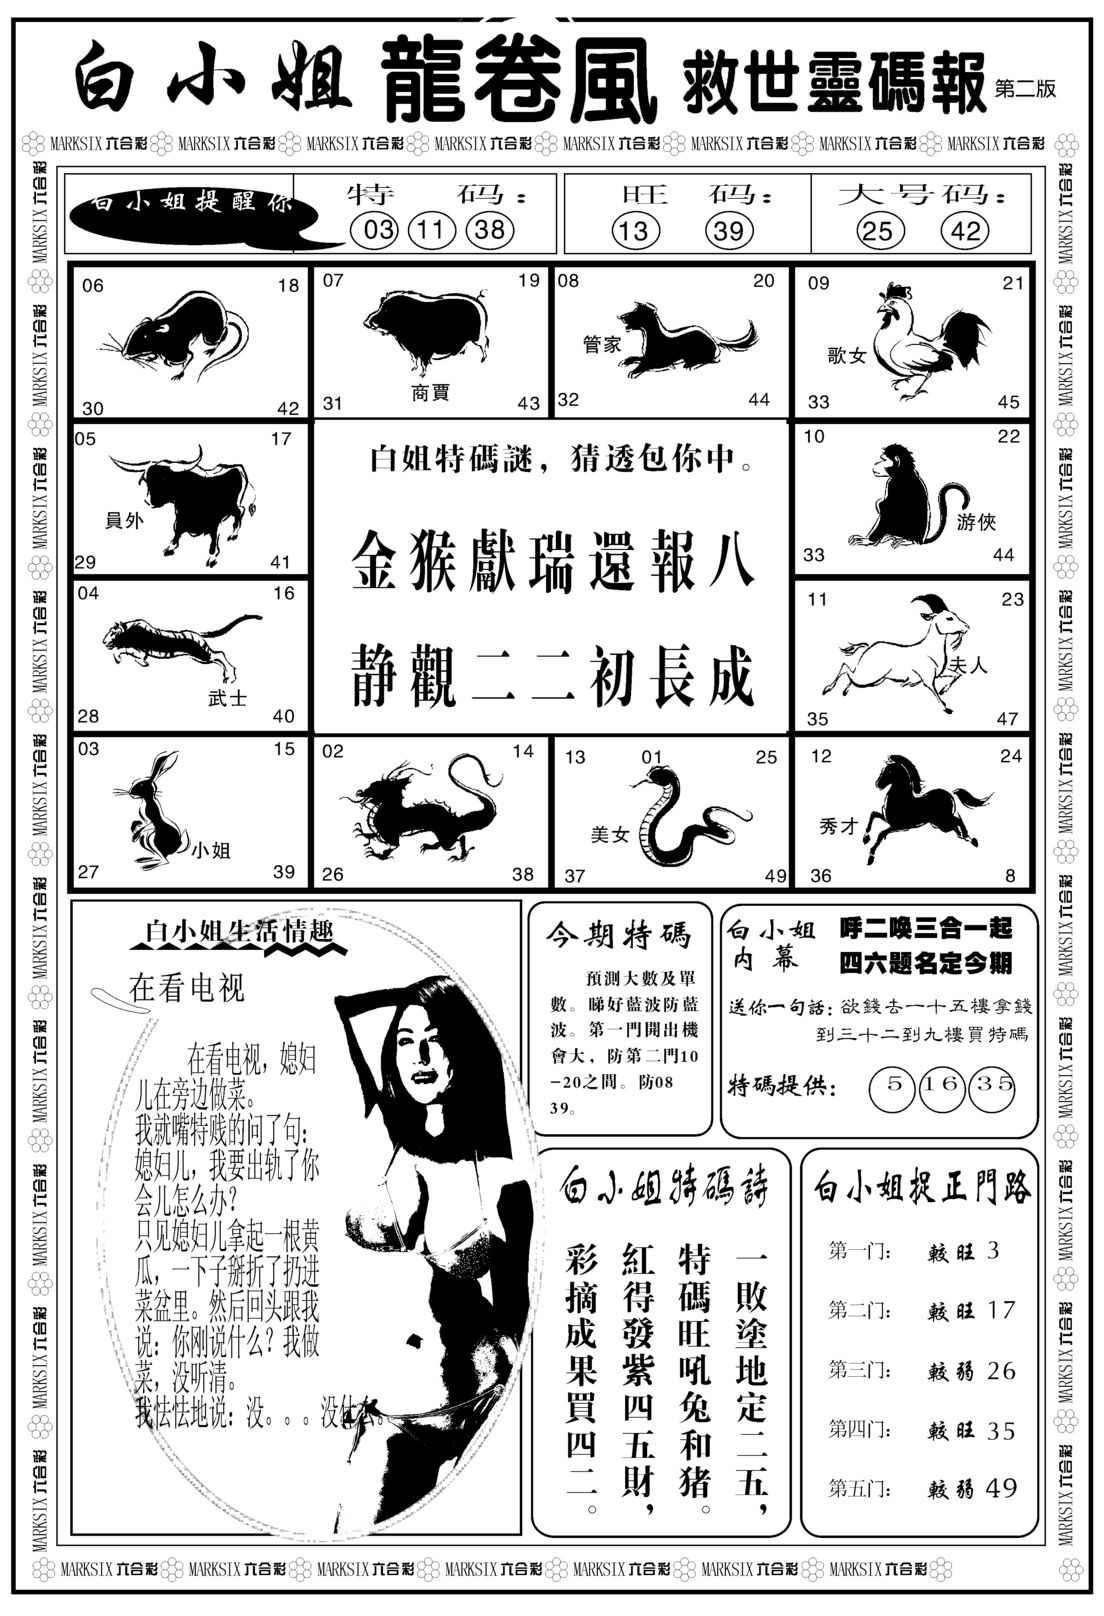 白小姐 龍卷風 救世靈碼報 第二版
MARKSIX 六合彩 MARKSIX 六合彩 MARKSIX 六合彩 MARKSIX 六合彩 MARKSIX 六合彩 MARKSIX 六合彩 MARKSIX 六合彩 MARKSIX 六合彩
白小姐提醒你
特 码：
03 11 38
旺 码：
13 39
大号码：
25 42
06 18
30 42
07 19
商賈
31 43
08 20
管家
32 44
09 21
歌女
33 45
05 17
員外
29 41
白姐特碼謎，猜透包你中。
金猴獻瑞還報八
静觀二二初長成
10 22
游俠
33 44
04 16
武士
28 40
11 23
夫人
35 47
03 15
小姐
27 39
02 14
26 38
13 01 25
美女
37 49
12 24
秀才
36 8
白小姐生活情趣
在看电视
在看电视，媳妇
儿在旁边做菜。
我就嘴特贱的问了句：
媳妇儿，我要出轨了你
会儿怎么办？
只见媳妇儿拿起一根黄
瓜，一下子掰折了扔进
菜盆里。然后回头跟我
说：你刚说什么？我做
菜，没听清。
我怯怯地说：没。。。没什么。
今期特碼
預測大數及單
數。睇好藍波防藍
波。第一門開出機
會大，防第二門10
-20之間。防08
39。
白小姐
内幕
呼二唤三合一起
四六题名定今期
送你一句話：欲錢去一十五樓拿錢
到三十二到九樓買特碼
特碼提供： 5 16 35
白小姐特碼詩
一敗塗地定二五，
特碼旺吼兔和猪。
紅得發紫四五財，
彩摘成果買四二。
白小姐捉正門路
第一门： 較旺 3
第二门： 較旺 17
第三门： 較弱 26
第四门： 較旺 35
第五门： 較弱 49
MARKSIX 六合彩 MARKSIX 六合彩 MARKSIX 六合彩 MARKSIX 六合彩 MARKSIX 六合彩 MARKSIX 六合彩 MARKSIX 六合彩